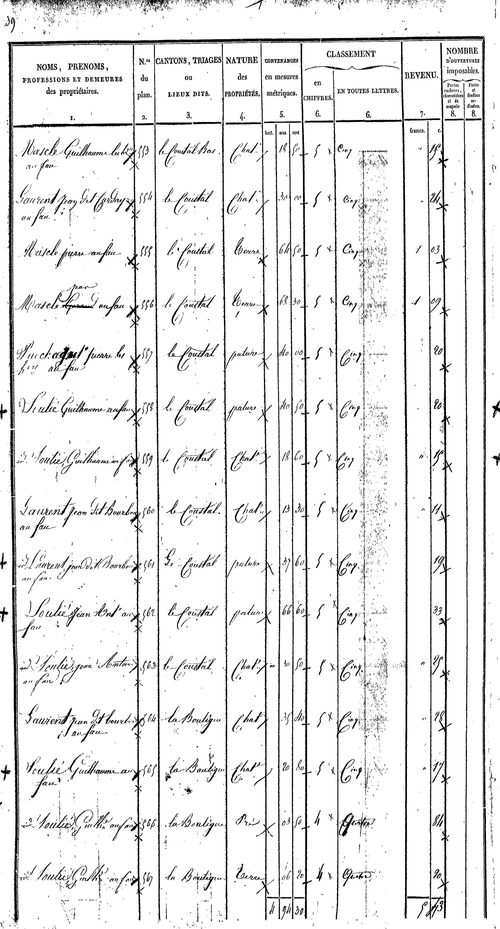 39
NOMS, PRENOMS,
PROFESSIONS ET DEMEURES
des propriétaires.
1.
N.os
du
plan.
2.
CANTONS, TRIAGES
ou
LIEUX DITS.
3.
NATURE
des
PROPRIÉTÉS.
4.
CONTENANCES
en mesures
métriques.
5.
CLASSEMENT
en
CHIFFRES.
6.
EN TOUTES LETTRES.
6.
REVENU.
7.
NOMBRE
D'OUVERTURES
imposables.
8.
8.
hect. ares cent.
francs. c.
Mascle Guilhaume 553 le Coustal Bas Chat. 18 50 5 Cinq 15
au fau
Laurent Jean dit 554 le Coustal Chat. 30 00 5 Cinq 24
au fau
Mascle pierre au fau 555 le Coustal Terre 64 50 5 Cinq 1 03
Mascle au fau 556 le Coustal Terre 68 30 5 Cinq 1 09
pierre les 557 le Coustal pature 40 00 5 Cinq 20
au fau
Soulié Guilhaume au fau 558 le Coustal pature 40 50 5 Cinq 20
id. Soulié Guilhaume au fau 559 le Coustal Chat. 18 60 5 Cinq 15
Laurent Jean dit Bourbou 560 le Coustal Chat. 13 30 5 Cinq 11
au fau
id. Laurent Jean dit Bourbou 561 Le Coustal pature 37 60 5 Cinq 19
au fau
Soulié Jean Ant. au 562 le Coustal pature 66 60 5 Cinq 33
fau
id. Soulié Jean Antoine 563 le Coustal Chat. 30 50 5 Cinq 25
au fau
Laurent Jean dit 564 la Boutique Chat. 35 40 5 Cinq 28
au fau
Soulié Guilhaume au 565 la Boutique Chat. 20 80 5 Cinq 17
fau
id. Soulié Guilh. au fau 566 la Boutique Pré 03 50 4 Quatre 84
id. Soulié Guilh. au fau 567 la Boutique Terre 06 20 4 Quatre 20
4 94 30 5 43